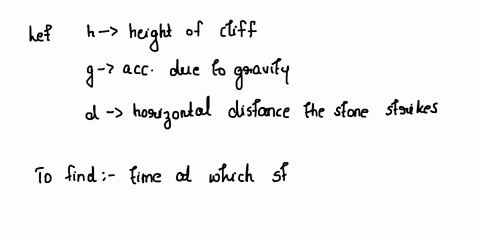 Let h -> height of cliff
g -> acc. due to gravity
d -> horizontal distance the stone strikes
To find :- time at which st